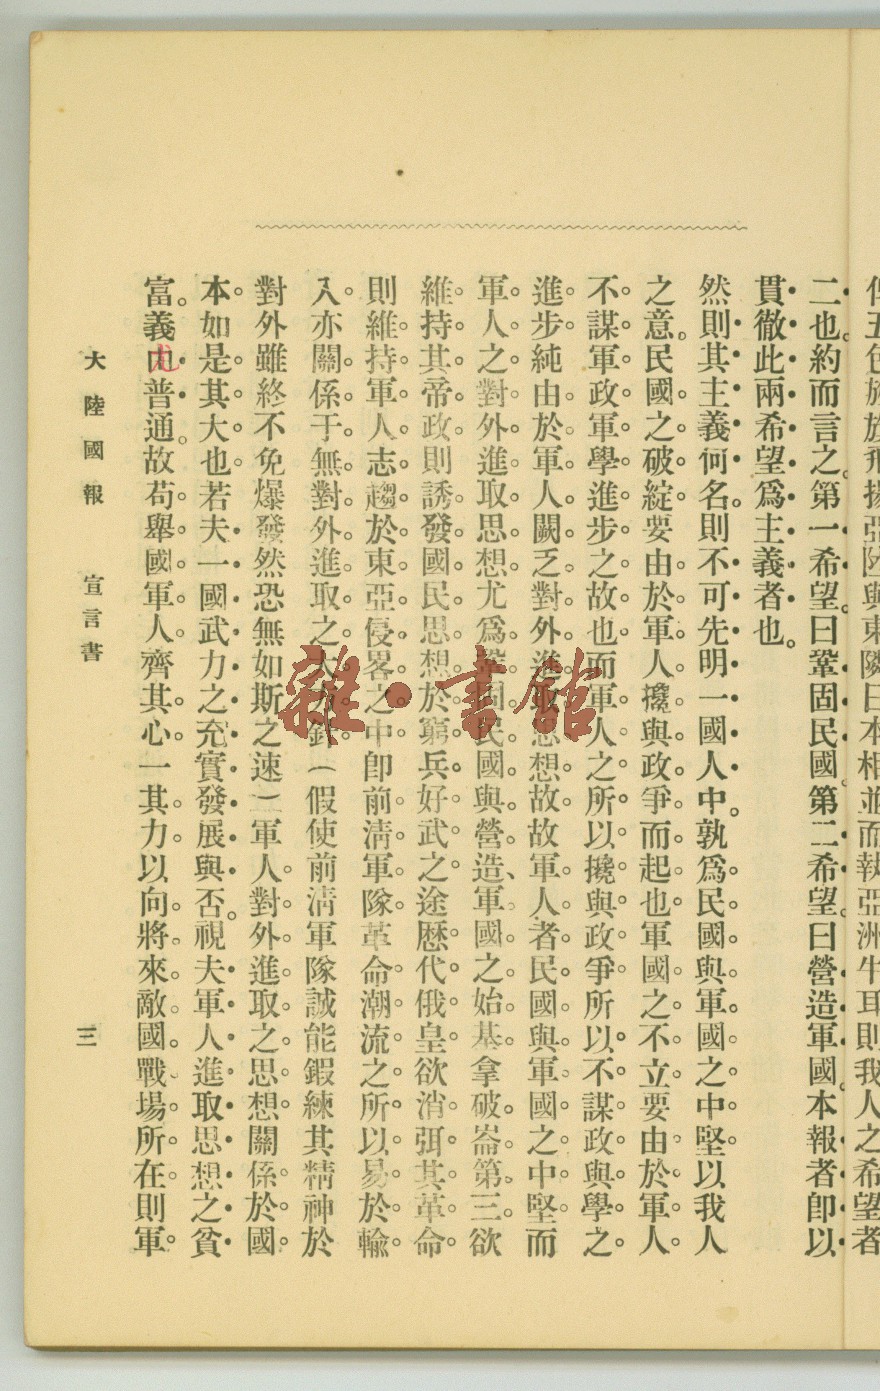 五色旌旗飛揚亞陸與東隣日本相並而執亞洲牛耳則我人之希望者
二也約而言之第一希望曰鞏固民國第二希望曰營造軍國本報者卽以
貫徹此兩希望爲主義者也
然則其主義何名則不可先明一國人中孰爲民國與軍國之中堅以我人
之意民國之破綻要由於軍人攙與政爭而起也軍國之不立要由於軍人
不謀軍政軍學進步之故也而軍人之所以攙與政爭所以不謀政與學之
進步純由於軍人闕乏對外進取思想故故軍人者民國與軍國之中堅而
軍人之對外進取思想尤爲鞏固民國與營造軍國之始基拿破崙第三欲
維持其帝政則誘發國民思想於窮兵好武之途歷代俄皇欲消弭其革命
則維持軍人志趨於東亞侵畧之中卽前淸軍隊革命潮流之所以易於輸
入亦關係于無對外進取之大方針(假使前淸軍隊誠能鍜練其精神於
對外雖終不免爆發然恐無如斯之速)軍人對外進取之思想關係於國
本如是其大也若夫一國武力之充實發展與否視夫軍人進取思想之貧
富義尤普通故苟舉國軍人齊其心一其力以向將來敵國戰場所在則軍
大陸國報 宣言書 三
雜·書館